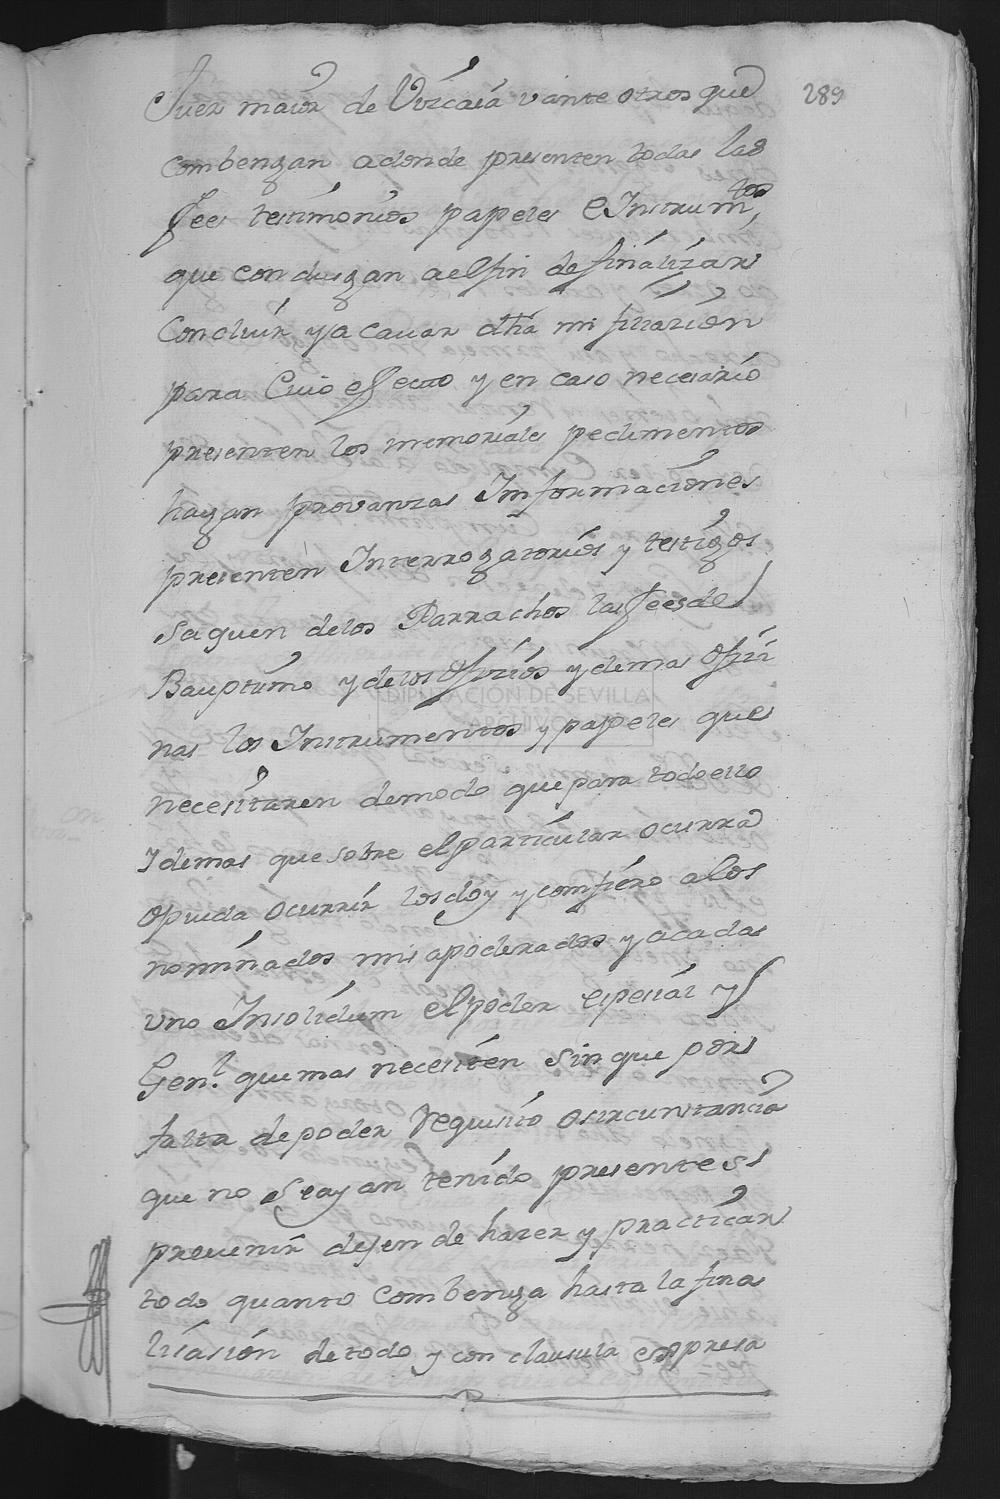 289
Juez maior de Vizcaia vante otros que
combengan adonde presenten todas las
fees testimonios papeles e Instrum.tos
que conduzgan a el fin de finalizar
Concluir y acavar dha mi filiacion
para Cuio effecto y en caso necesario
presenten los memoriales pedimentos
hagan provanzas Imformaciones
presenten Interrogatorios y testigos
saquen delos Parrachos las fees de
Bauptismo y delos Ofizios y demas Ofizi
nas los Instrumentos y papeles que
necesitaren demodo que para todo ello
Idemas que sobre el particular ocurra
opueda ocurrir los doy y comfiero alos
nominados mis apoderados y acada
uno Insolidum el poder espesial y
Gen.l que mas necesiten sin que por
falta de poder requisito osircunstancia
que no seayan tenido presentes
prevenir dejen de hazer y practicar
todo quanto combenga hasta la fina
lisasion de todo y con clausula expresa
DIPUTACIÓN DE SEVILLA
ARCHIVO